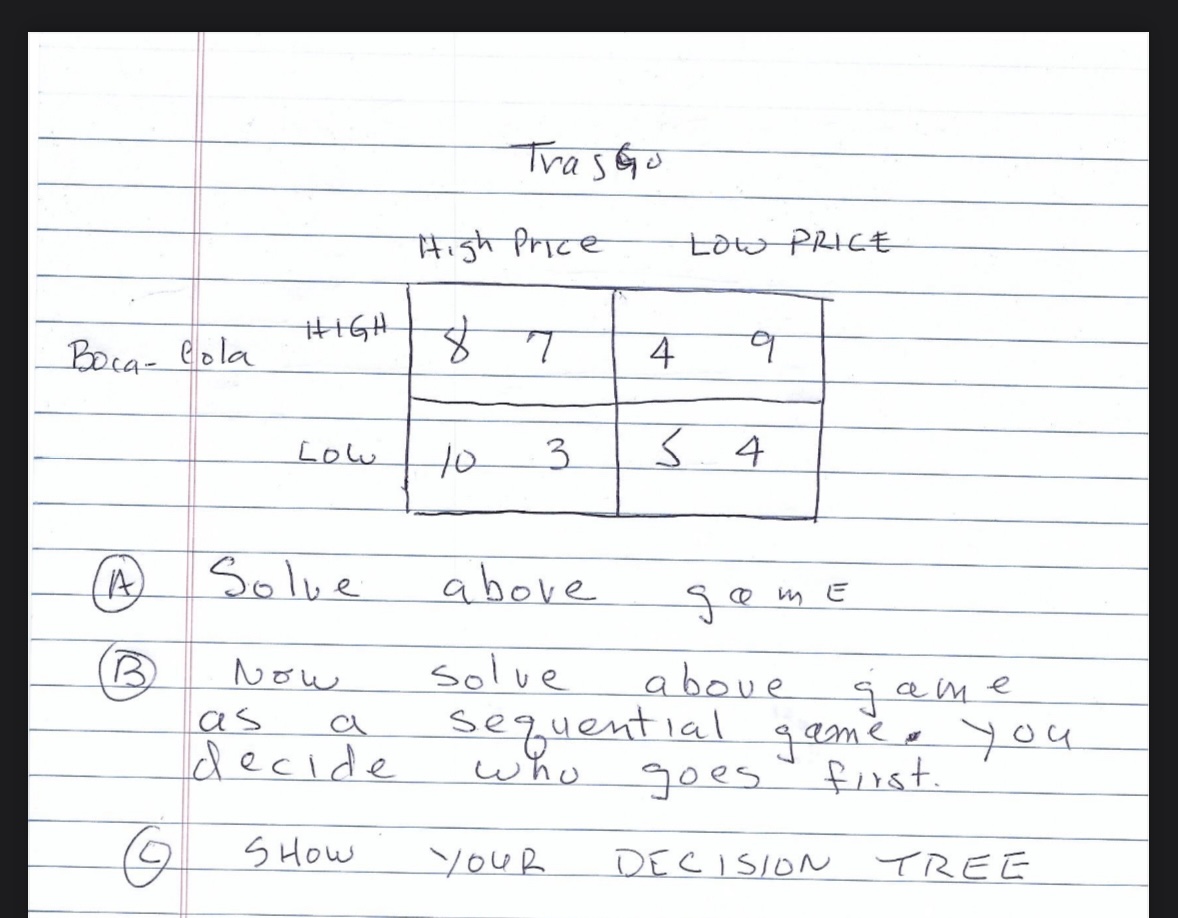 TrasGo
High Price LOW PRICE
HIGH 8 7 4 9
Boca-Cola
LOW 10 3 5 4
A Solve above gamE
B Now solve above game
as a sequential game. you
decide who goes first.
C SHOW YOUR DECISION TREE